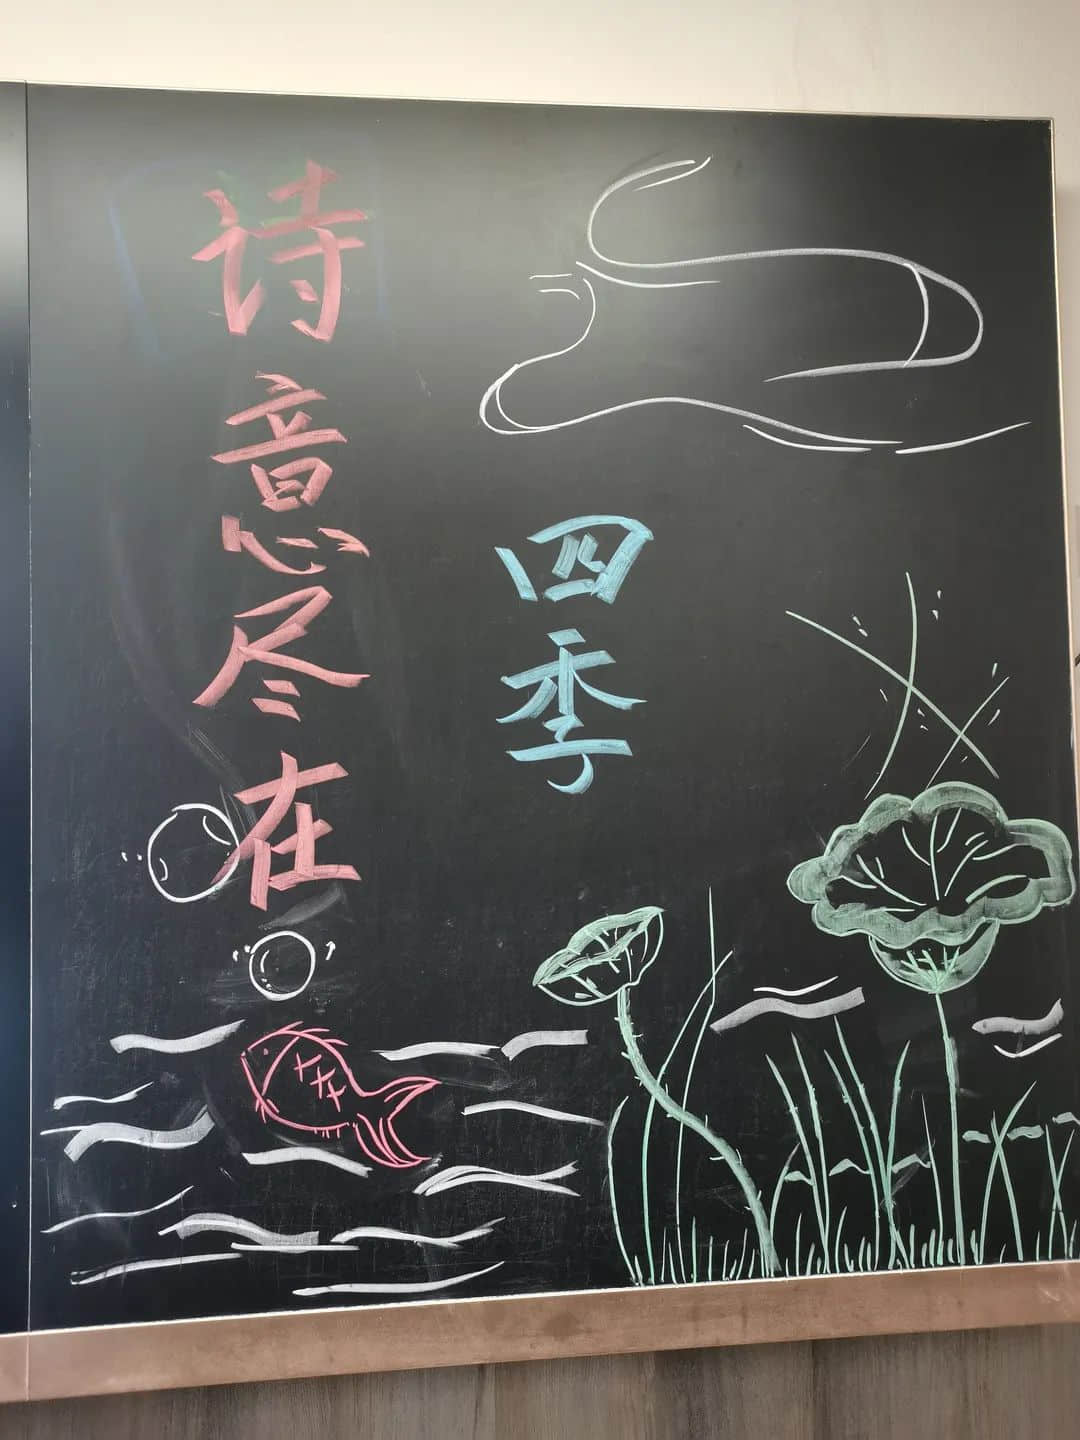 诗意尽在
四季